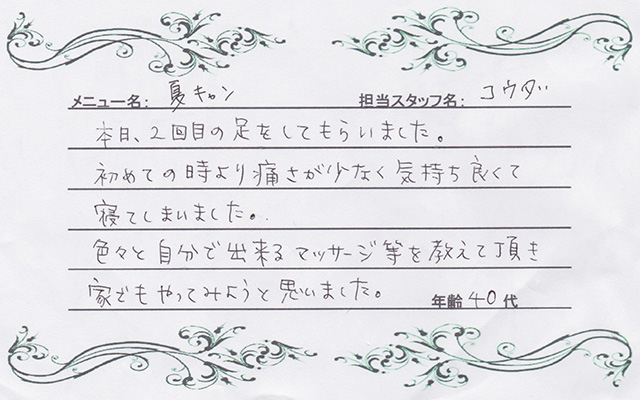 メニュー名: 夏キャン 担当スタッフ名: コウダ
本日、2回目の足をしてもらいました。
初めての時より痛さが少なく気持ち良くて
寝てしまいました。
色々と自分で出来るマッサージ等を教えて頂き
家でもやってみようと思いました。 年齢 40 代